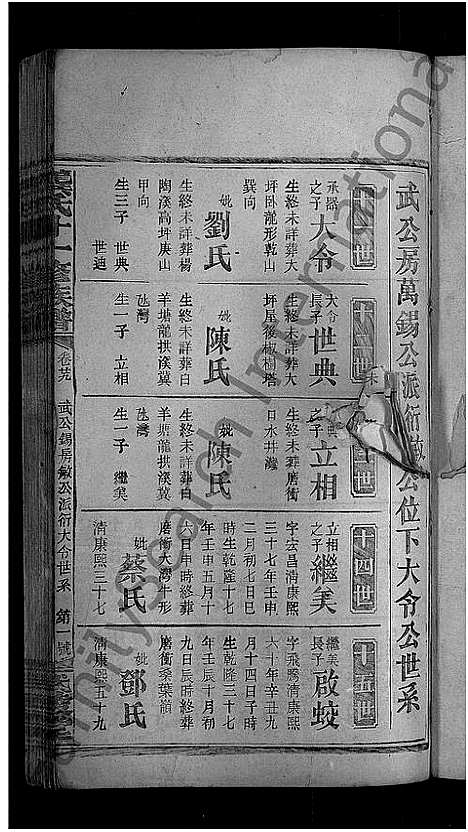 武公房萬錫公派衍
公位下大令公世系
承器之子大令
生終未詳葬大
坪卧龍形乾山
巽向
妣劉氏
生終未詳葬楊
陶溪高坪庚山
甲向
生三子 世典
世迪
大令長子世典
生終未詳葬大
坪屋後椒樹塔
妣陳氏
生終未詳葬白
羊塘龍拱溪冀
氹灣
生一子 立相
之子立相
生終未葬磨衝
日水井灣
妣陳氏
生終未詳葬白
羊塘龍拱溪冀
氹灣
生一子 繼美
十四世
立相之子繼美
字宏昌清康熙
三十七年壬申
二月初七日巳
時生乾隆十七
年壬申五月十
六日申時終葬
磨衝大灣牛形
妣蔡氏
清康熙三十七
十五世
繼美長子啟蛟
字飛騰清康熙
六十年辛丑九
月十四日子時
生乾隆三十七
年壬辰十月初
九日辰時終葬
磨衝桑葉嶺
妣鄧氏
清康熙五十九
氏十一修族譜
卷廿九
武公錫房公派衍大令世系
第一號
Family Search International